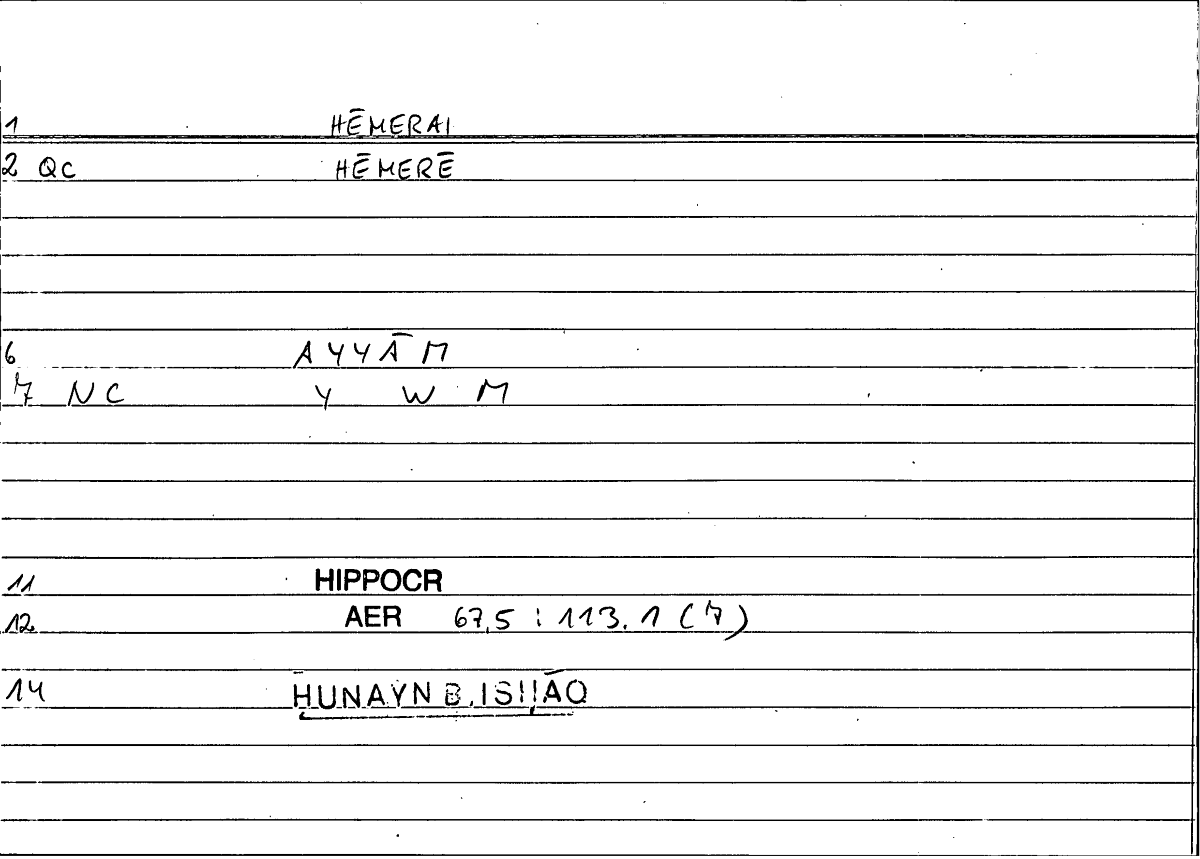 1 HĒMERAI
2 QC HĒMERĒ
6 AYYĀM
7 NC Y W M
11 HIPPOCR
12 AER 67,5 : 113.1 (7)
14 ḤUNAYN B. ISḤĀQ